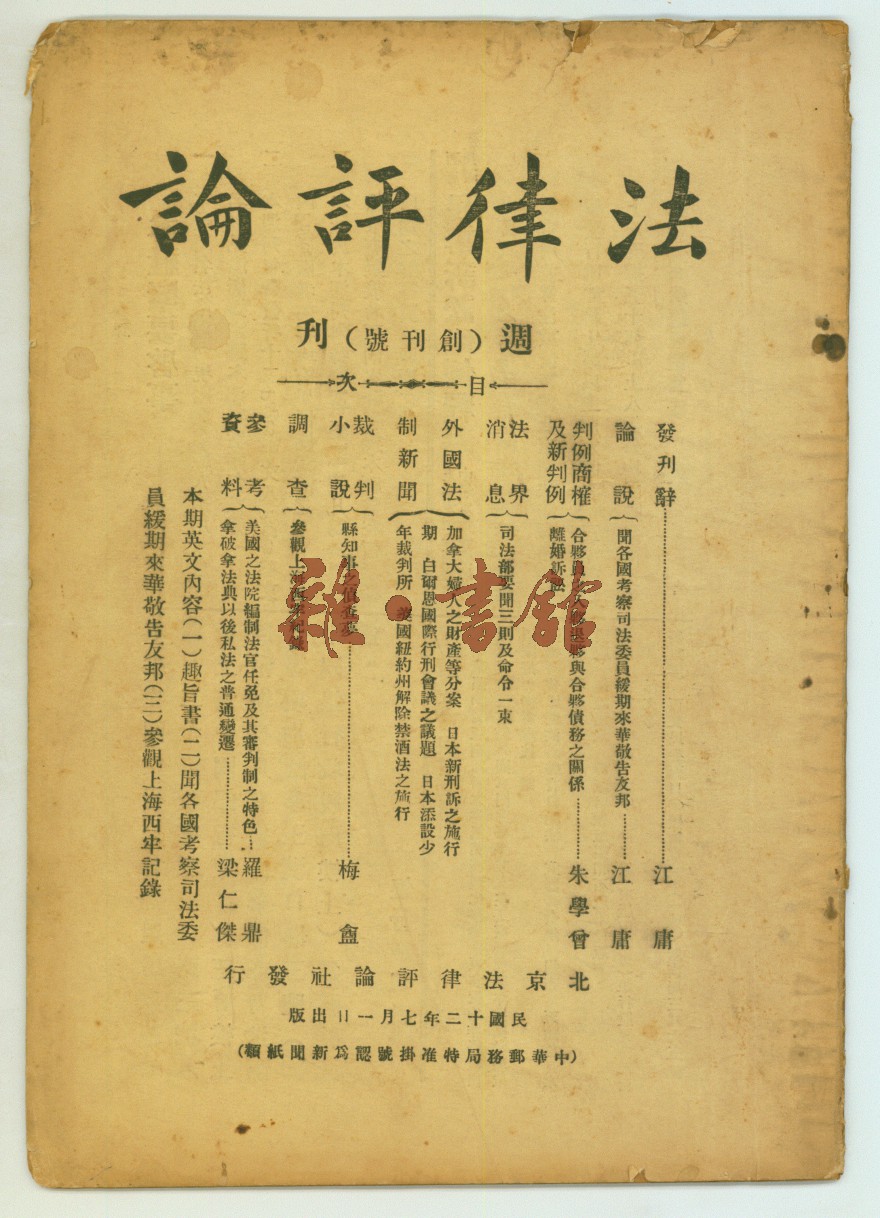 法律評論
週（創刊號）刊
目次
發刊辭……江庸
論說 聞各國考察司法委員緩期來華敬告友邦……江庸
判例商榷及新判例
合夥員 與合夥債務之關係……朱學曾
離婚訴訟
法界消息 司法部要聞三則及命令一束
外國法制新聞
加拿大婦人之財產等分案 日本新刑訴之施行
期 白爾恩國際行刑會議之議題 日本添設少
年裁判所 美國紐約州解除禁酒法之施行
裁判小說 縣知事之偵查……梅盦
調查 參觀上海西牢記錄
參考資料
美國之法院編制法官任免及其審判制之特色…羅鼎
拿破拿法典以後私法之普通變遷……梁仁傑
本期英文內容（一）趣旨書（二）聞各國考察司法委
員緩期來華敬告友邦（三）參觀上海西牢記錄
北京法律評論社發行
民國十二年七月一日出版
（中華郵務局特准掛號認爲新聞紙類）
雜·書館